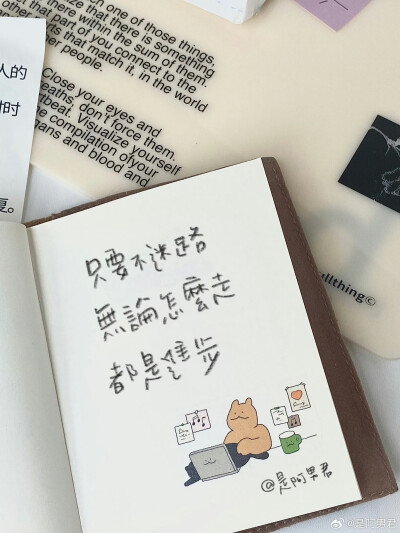 in one of those things,
that there is something
within the sum of them.
of you connect to the
that match it, in the world
other people.
Close your eyes and
don't force them.
Visualize yourself
the compilation of your
and blood and
人的
时
复。
只要不迷路
無論怎麼走
都是進步
@是阿男君
ullthing©
@是阿男君